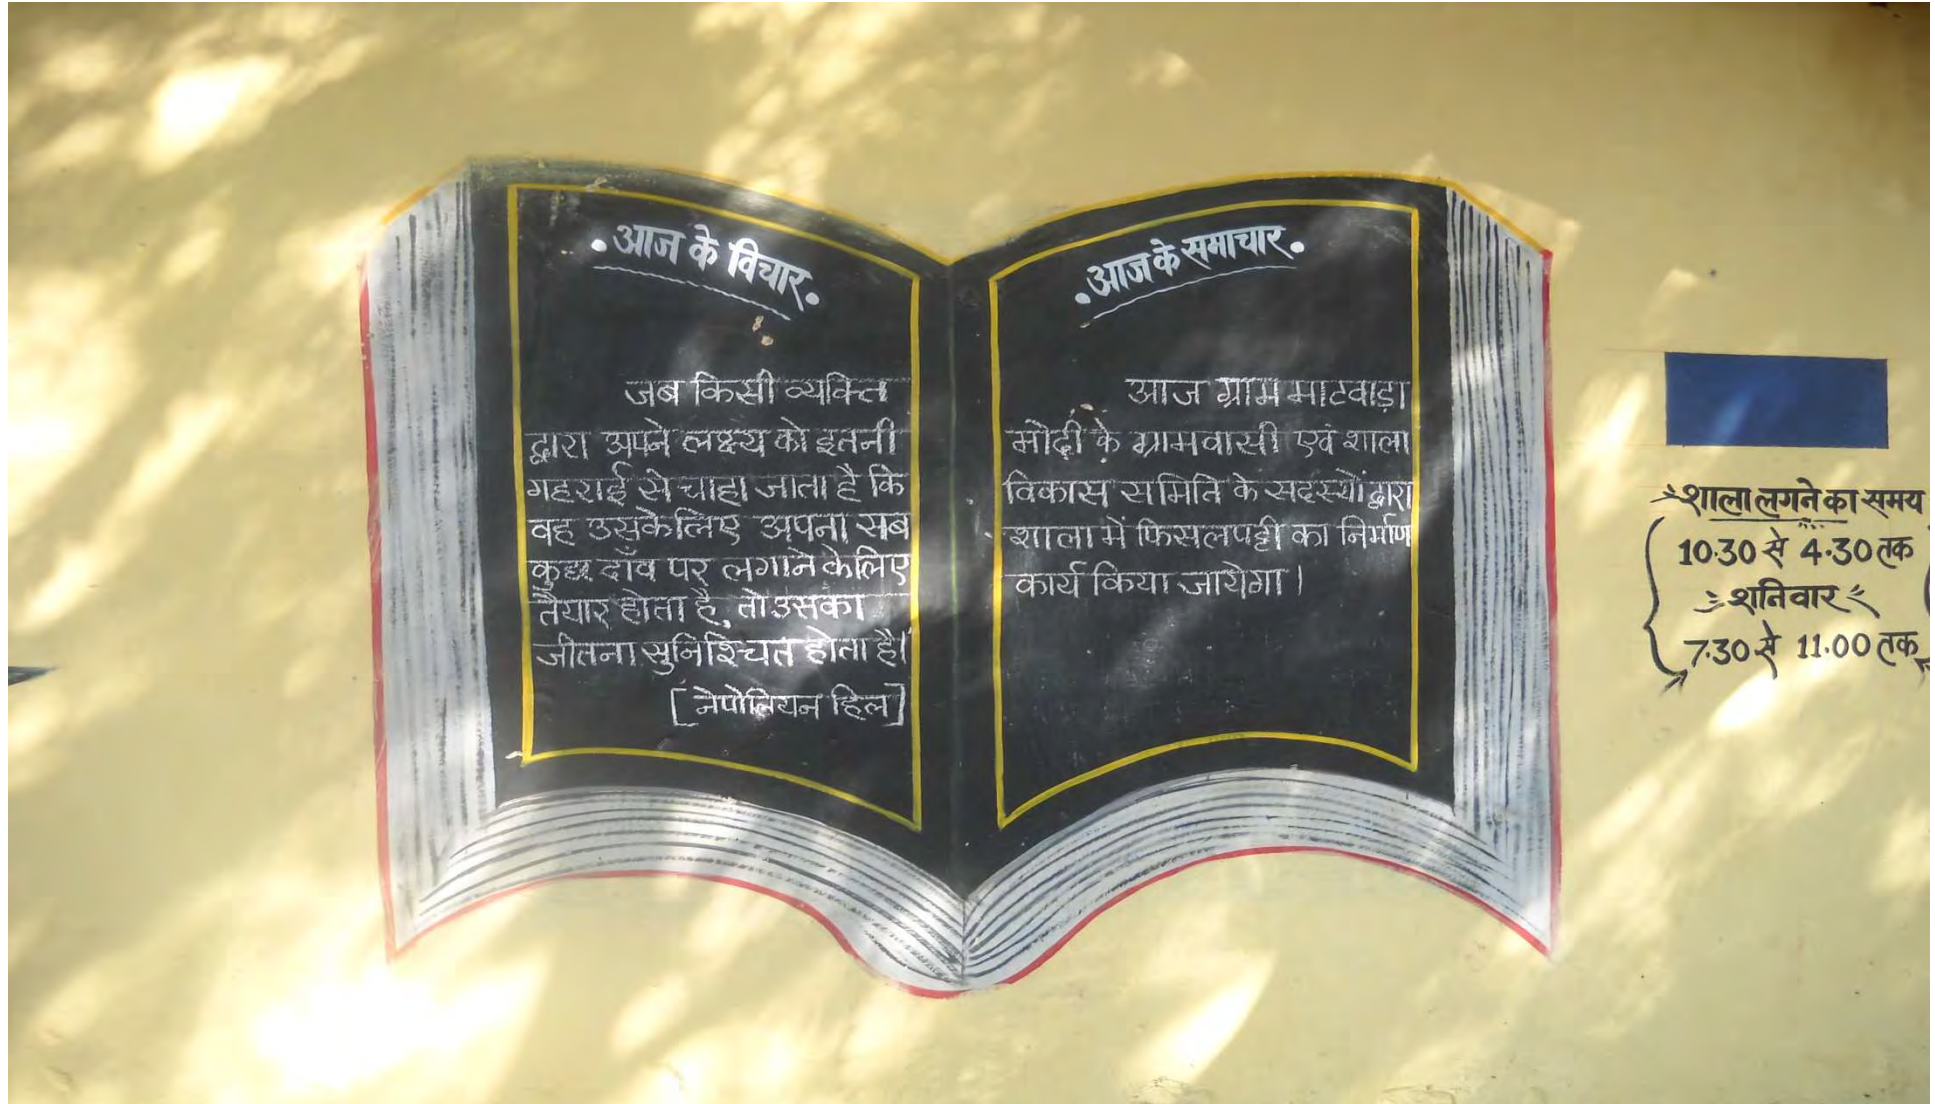 • आज के विचार •
जब किसी व्यक्ति
द्वारा अपने लक्ष्य को इतनी
गहराई से चाहा जाता है कि
वह उसकेलिए अपना सब
कुछ दाँव पर लगाने केलिए
तैयार होता है, तो उसका
जीतना सुनिश्चित होता है।
[नेपोलियन हिल]
• आज के समाचार •
आज ग्राम माटवाड़ा
मोदी के ग्रामवासी एवं शाला
विकास समिति के सदस्यों द्वारा
शाला में फिसलपट्टी का निर्माण
कार्य किया जायेगा।
शाला लगने का समय
10.30 से 4.30 तक
शनिवार
7.30 से 11.00 तक